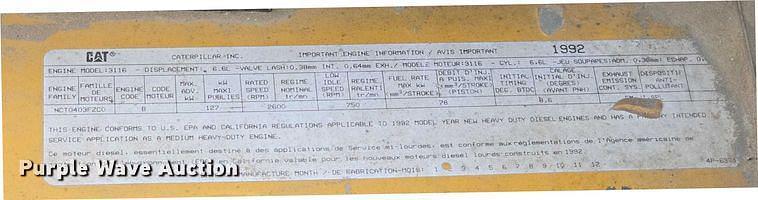 CAT CATERPILLAR INC. IMPORTANT ENGINE INFORMATION / AVIS IMPORTANT 1992
ENGINE MODEL:3116 - DISPLACEMENT: 6.6L -VALVE LASH:0,38mm INT. 0,64mm EXH./ MODELE MOTEUR:3116 - CYL.: 6.6L -JEU SOUPAPES:ADM. 0,38mm: ECHAP.
ENGINE FAMILY FAMILLE DE MOTEURS ENGINE CODE CODE MOTEUR MAX ADV. kW kW MAXI PUBLIES RATED SPEED (RPM) REGIME NOMINAL tr/mn LOW IDLE SPEED (RPM) REGIME RALENTI tr/mn FUEL RATE MAX kW mm³/STROKE DEBIT D'INJ. A PUIS. MAXI mm³/STROKE (PISTON) INITIAL TIMING (DEG.) CALAGE INITIAL D'INJ. (DEGRES) (AVANT PMH) EXHAUST EMISSION CONT. SYS. DISPOSITIF ANTI-POLLUANT
NCT0403FZC0 8 127 2600 750 78 8.6
THIS ENGINE CONFORMS TO U.S. EPA AND CALIFORNIA REGULATIONS APPLICABLE TO 1992 MODEL YEAR NEW HEAVY DUTY DIESEL ENGINES AND HAS A PRIMARY INTENDED
SERVICE APPLICATION AS A MEDIUM HEAVY-DUTY ENGINE.
Ce moteur diesel, essentiellement destiné à des applications de Service mi-lourdes, est conforme aux réglementations de l'Agence américaine de
Californie valable pour les nouveaux moteurs diesel lourds construits en 1992.
MANUFACTURE MONTH / DE FABRICATION-MOIS: 1 3 4 5 6 7 8 9 10 11 12
Purple Wave Auction